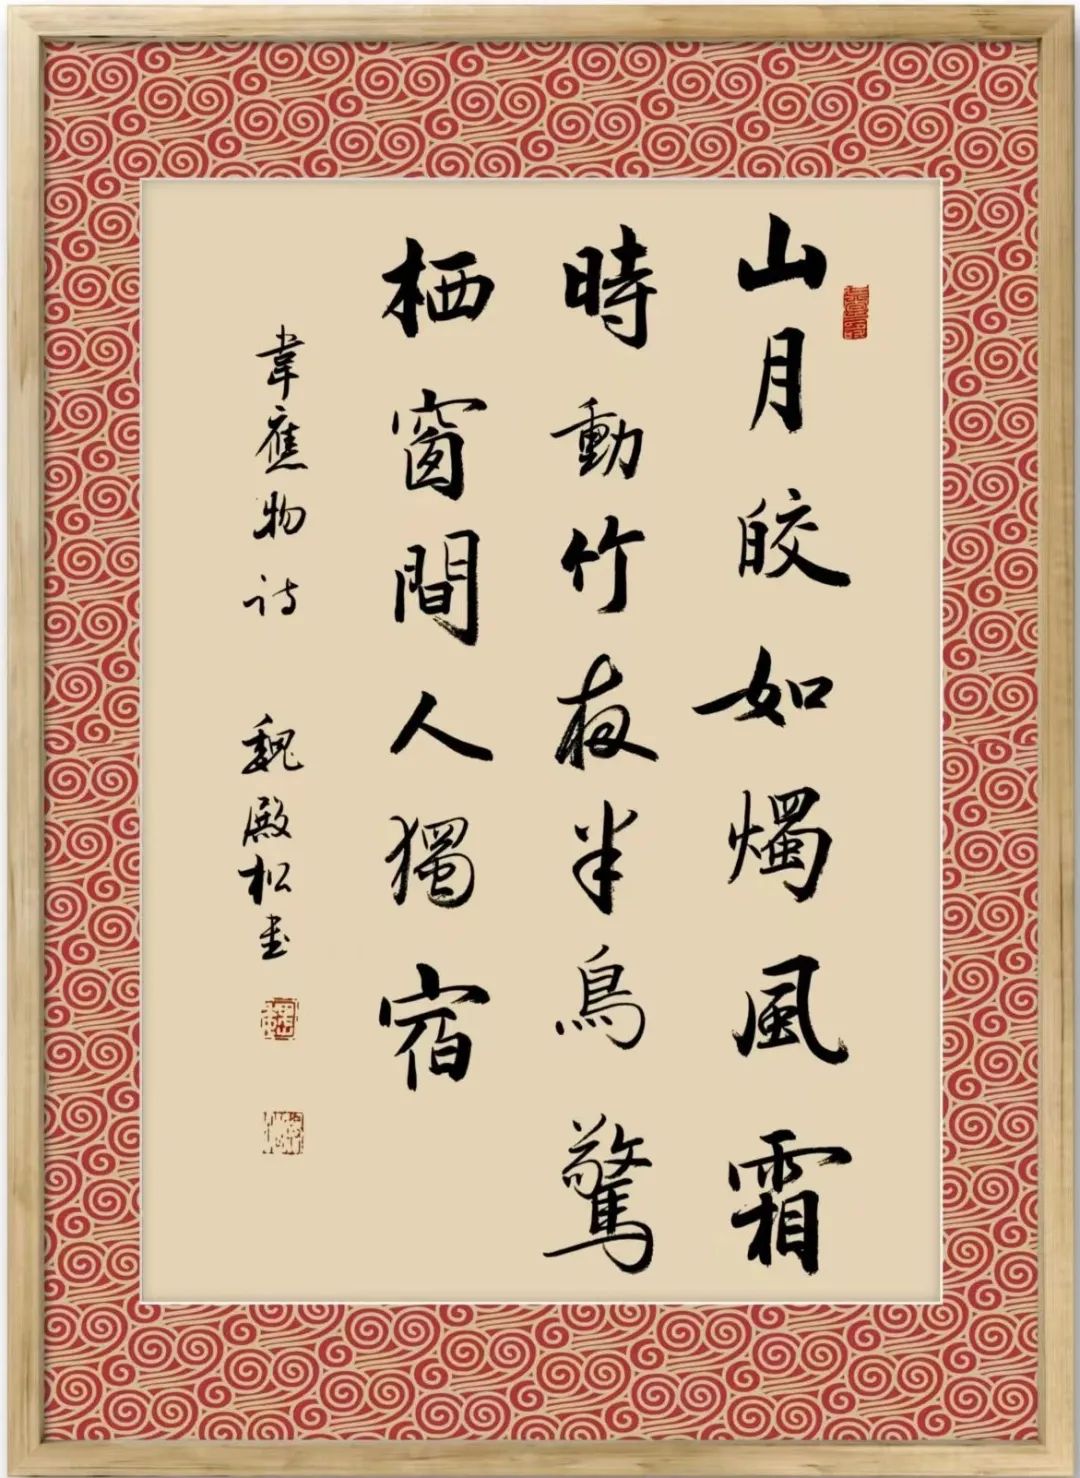 山月皎如燭風霜
時動竹夜半鳥驚
栖窗間人獨宿
韋應物诗 魏殿松书